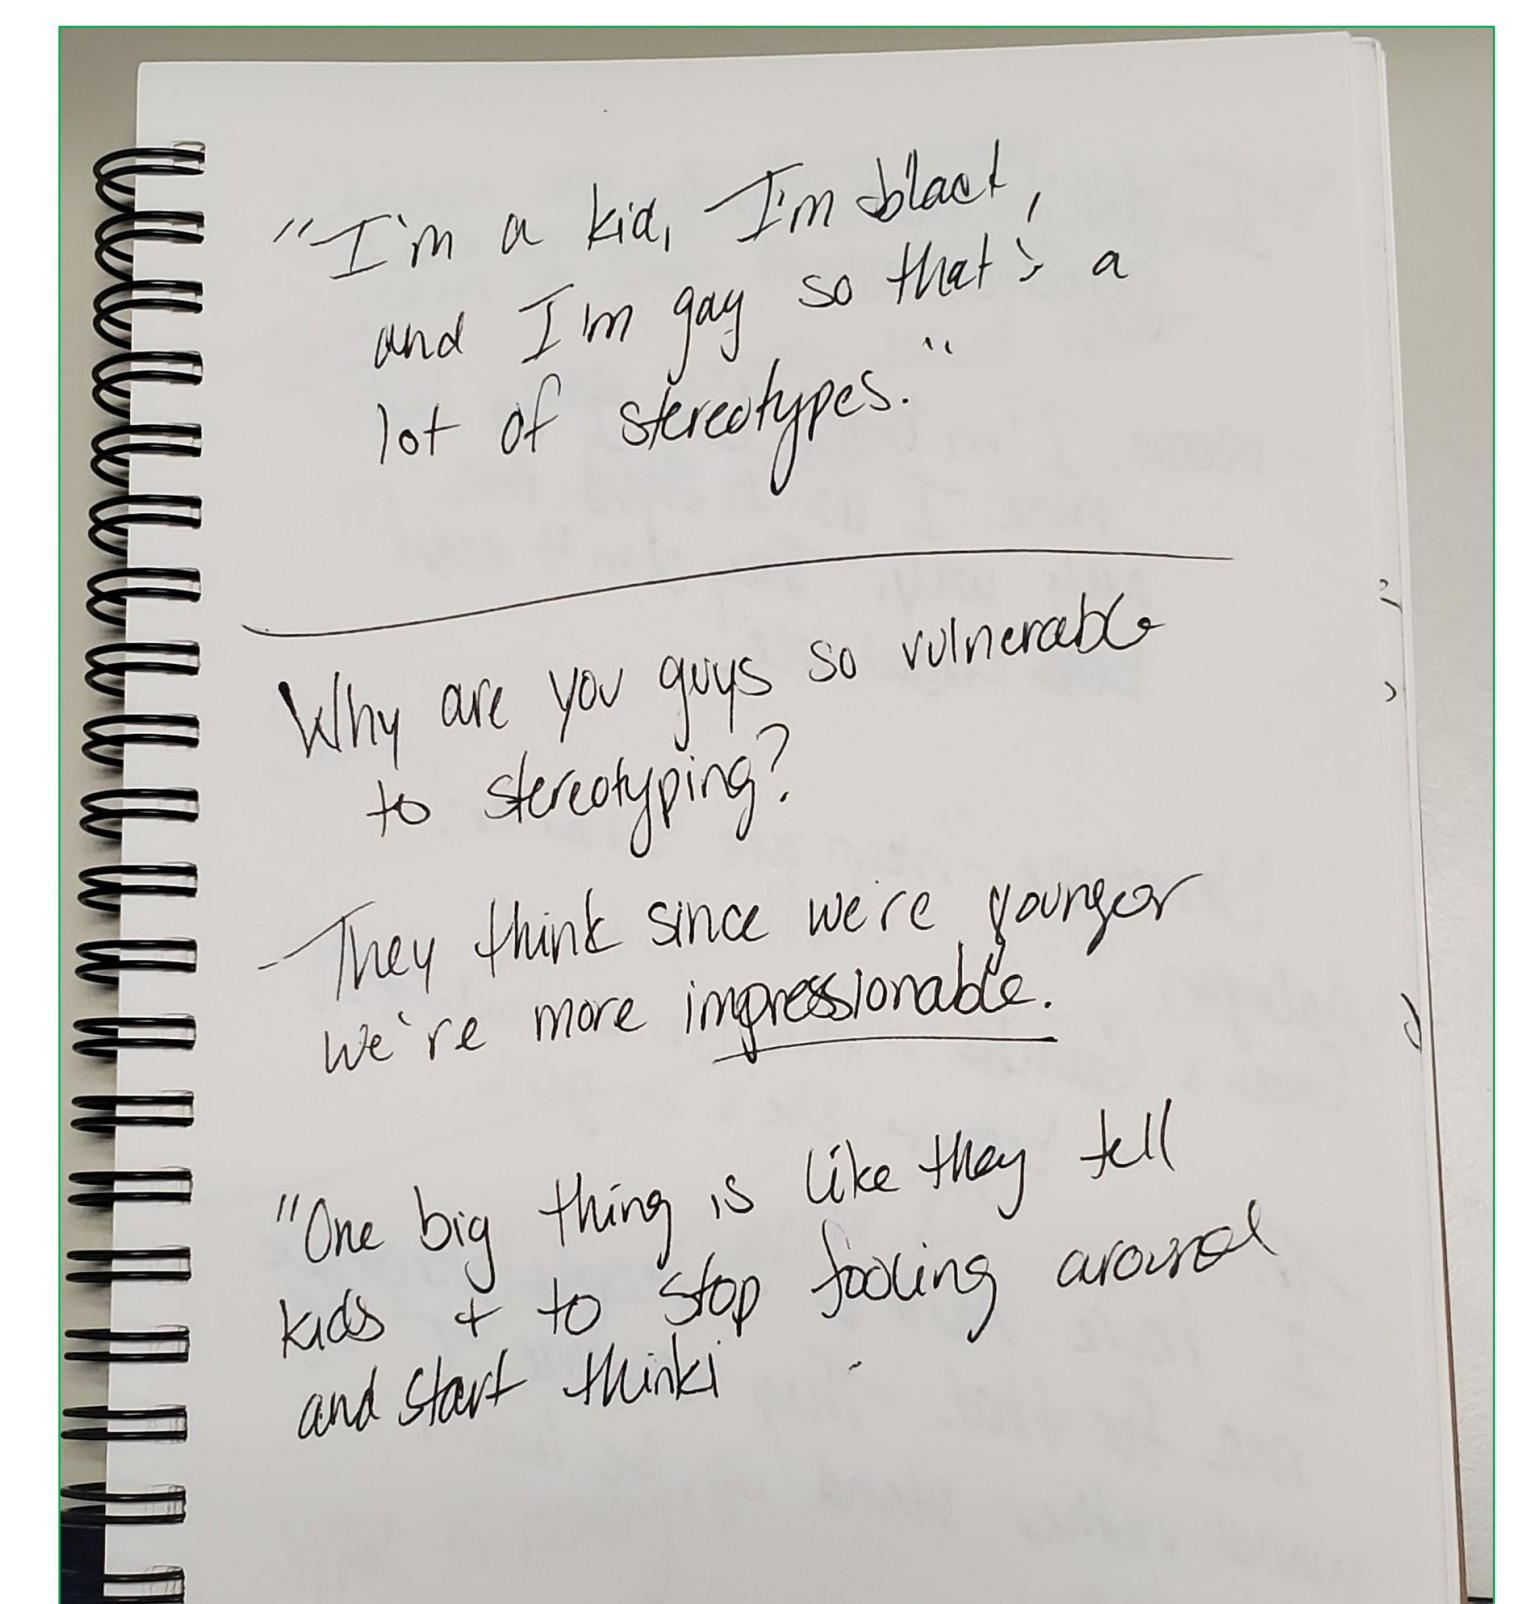 "I'm a kid, I'm black,
and I'm gay so that's a
lot of stereotypes."
Why are you guys so vulnerable
to stereotyping?
- They think since we're younger
we're more impressionable.
"One big thing is like they tell
kids + to stop fooling around
and start thinki